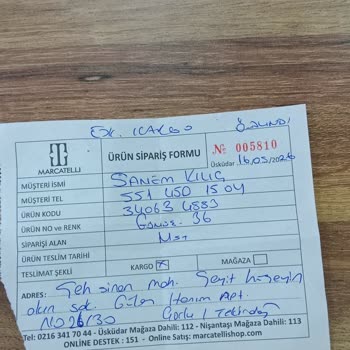 Ö.ALINDI
№ 005810
MARCATELLI
ÜRÜN SİPARİŞ FORMU
Üsküdar 16.05/2026
MÜŞTERİ ISMI SANEM KILIÇ
MÜŞTERİ TEL 551 450 15 04
ÜRÜN KODU 34063 4553
ÜRÜN NO ve RENK 36
SİPARİŞİ ALAN
ÜRÜN TESLİM TARİHİ
TESLİMAT ŞEKLİ KARGO X MAĞAZA
ADRES: Şeh sinan mah. Seyit hüseyin
Hanım Apt.
NO 26/30 Çorlu / Tekirdağ
Tel: 0216 341 70 44 - Üsküdar Mağaza Dahili: 112 - Nişantaşı Mağaza Dahili: 113
ONLINE DESTEK : 151 - Online Satış: marcatellishop.com